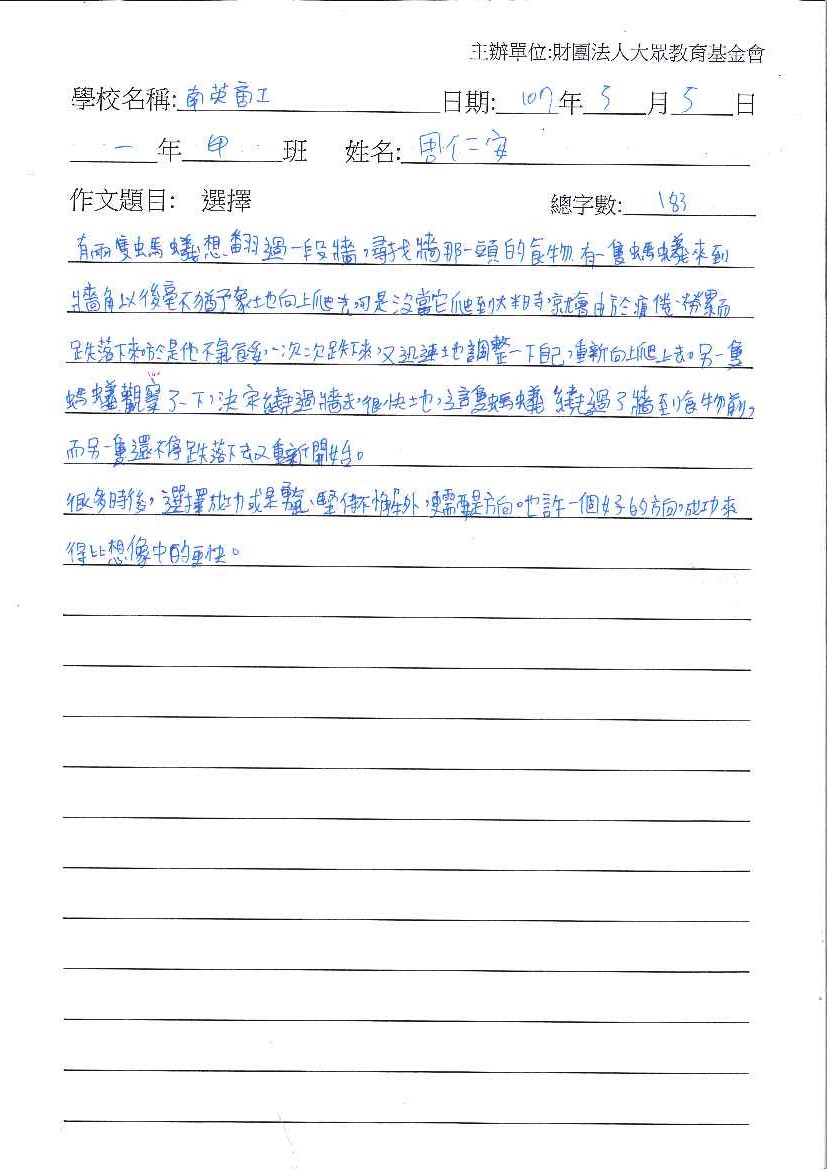 主辦單位:財團法人大眾教育基金會
學校名稱:南英商工 日期: 107年 5 月 5 日
一 年 甲 班 姓名: 周仁安
作文題目: 選擇 總字數: 183
有兩隻螞蟻想翻過一段牆,尋找牆那一頭的食物,有一隻螞蟻來到
牆角以後毫不猶予象土地向上爬去可是沒當它爬到大半時就會由於疲倦、勞累而
跌落下來。於是他不氣餒,一次次跌下來,又迅速地調整一下自己,重新向上爬上去。另一隻
螞蟻觀察了一下,決定繞過牆去,很快地,這隻螞蟻繞過了牆到食物前,
而另一隻還不停跌落下去又重新開始。
很多時後,選擇成功或是勇氣、堅持不懈外,更需要是方向。也許一個好的方向,成功來
得比想像中的更快。